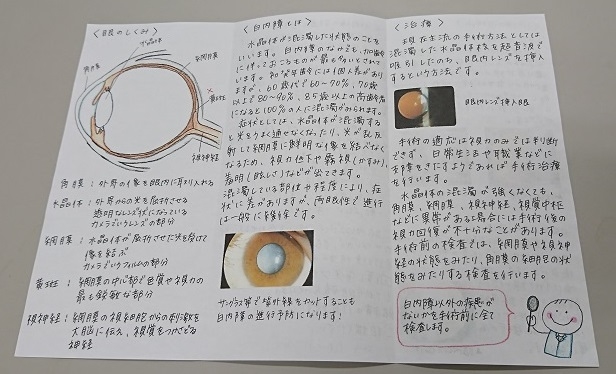 〈眼のしくみ〉
水晶体
角膜
網膜
黄斑
視神経
角膜：外界の像を眼内に取り入れる
水晶体：外界からの光を屈折させる
透明なレンズ状になっている
カメラでいうレンズの部分
網膜：水晶体が屈折させた光を受けて
像を結ぶ
カメラでいうフィルムの部分
黄斑：網膜の中心部で色質や視力の
最も鋭敏な部分
視神経：網膜の視細胞からの刺激を
大脳に伝え、視覚をつかさどる
神経
〈白内障とは〉
水晶体が混濁した状態のことを
いいます。白内障のなかでも、加齢
に伴っておこるものが最も多いとされて
います。初発年齢には個人差があり
ますが、60歳代で60〜70%、70歳
以上で80〜90%、85歳以上の高齢者
になると100%の人に混濁がみられます。
症状としては、水晶体が混濁する
と光をうまく通せなくなったり、光が乱反
射して網膜に鮮明な像を結べなく
なるため、視力低下や霧視（かすみ）、
羞明（眩しさ）などが出てきます。
混濁している部位や程度により、症
状に差がありますが、両眼性で進行
は一般に緩徐です。
サングラス等で紫外線をカットすることも
白内障の進行予防になります！
〈治療〉
現在主流の手術方法としては
混濁した水晶体核を超音波で
吸引したのち、眼内レンズを挿入
するという方法です。
眼内レンズ挿入眼
手術の適応は視力のみでは判断
できず、日常生活や職業などに
支障をきたすようであれば手術治療
を行います。
水晶体の混濁が強くなくても、
角膜、網膜、視神経、視覚中枢
などに異常がある場合には手術後の
視力回復が不十分なことがあります。
手術前の検査では、網膜や視神
経の状態をみたり、角膜の細胞の状
態をみたりする検査を行います。
白内障以外の疾患が
ないかを手術前に全て
検査します。